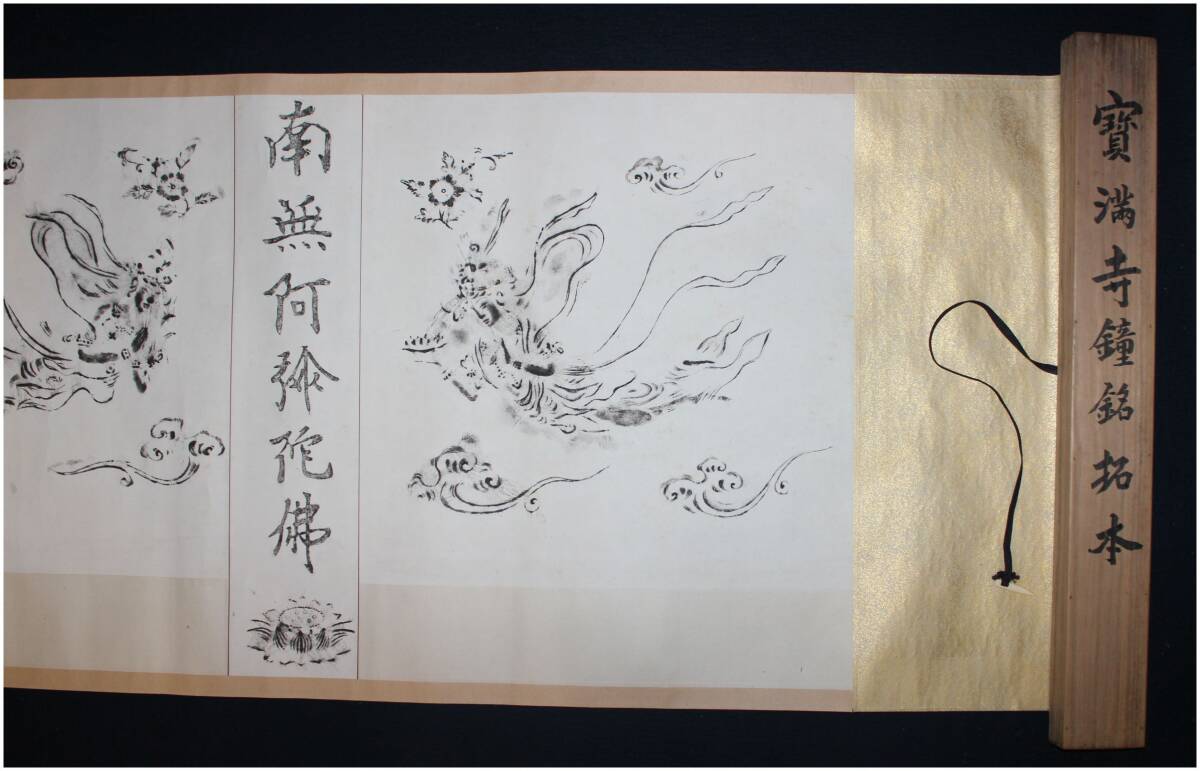 寶滿寺鐘銘拓本
南無阿弥陀佛